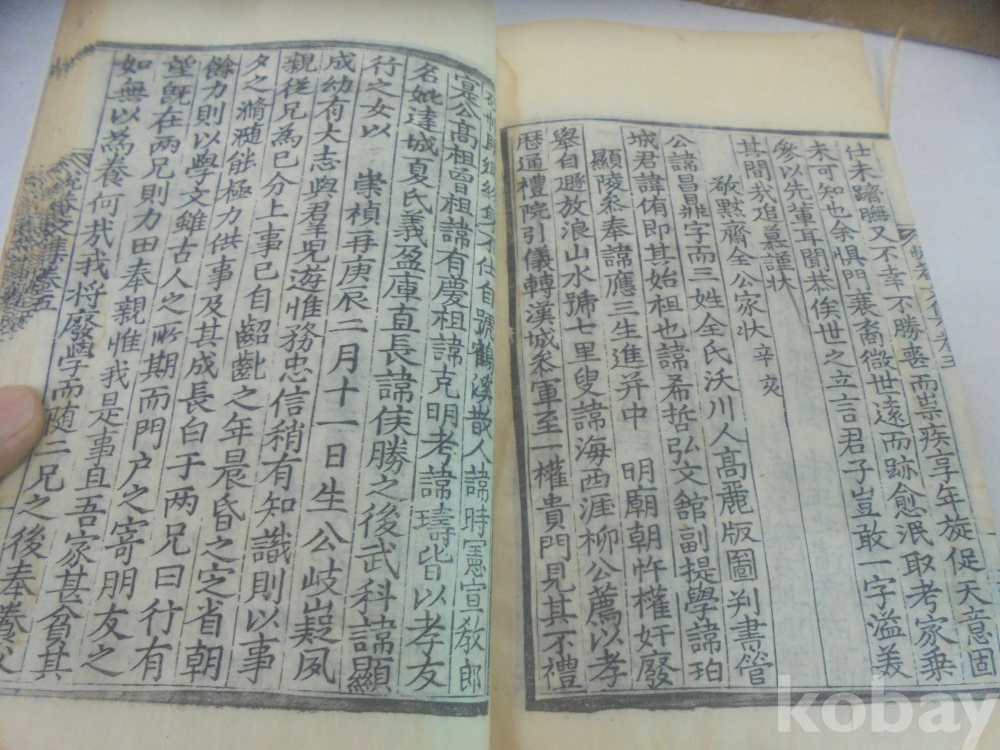 仕未躋膴又不幸不勝喪而祟疾享年旋促天意固
未可知也余惧門衰裔微世遠而跡愈泯取考家乗
參以先輩耳聞恭俟世之立言君子豈敢一字溢美
其間我追慕謹状
敬黙齋全公家状 辛亥
公諱昌鼎字而三姓全氏沃川人高麗版圖判書管
城君諱侑即其始祖也諱希哲弘文館副提學諱珀
顯陵叅奉諱應三生進并中 明廟朝忤權奸廢
舉自遯放浪山水號七里叟諱海西涯柳公薦以孝
歴通禮院引儀轉漢城叅軍至一權貴門見其不禮
不仕自號鶴溪散人諱時憲宣教郎
寔公高祖曾祖諱有慶祖諱克明考諱璹皆以孝友
名妣達城夏氏義盈庫直長諱俟勝之後武科諱顯
行之女以 崇禎再庚辰二月十一日生公岐嶷夙
成幼有大志與羣兒遊惟務忠信稍有知識則以事
親従兄為已分上事已自齠齔之年晨昏之定省朝
夕之滫瀡能極力供事及其成長白于两兄曰行有
餘力則以學文雖古人之所期而門户之寄朋友之
望旣在两兄則力田奉親惟我是事且吾家甚貧其
如無以為養何哉我将廢學而随二兄之後奉養父
kobay